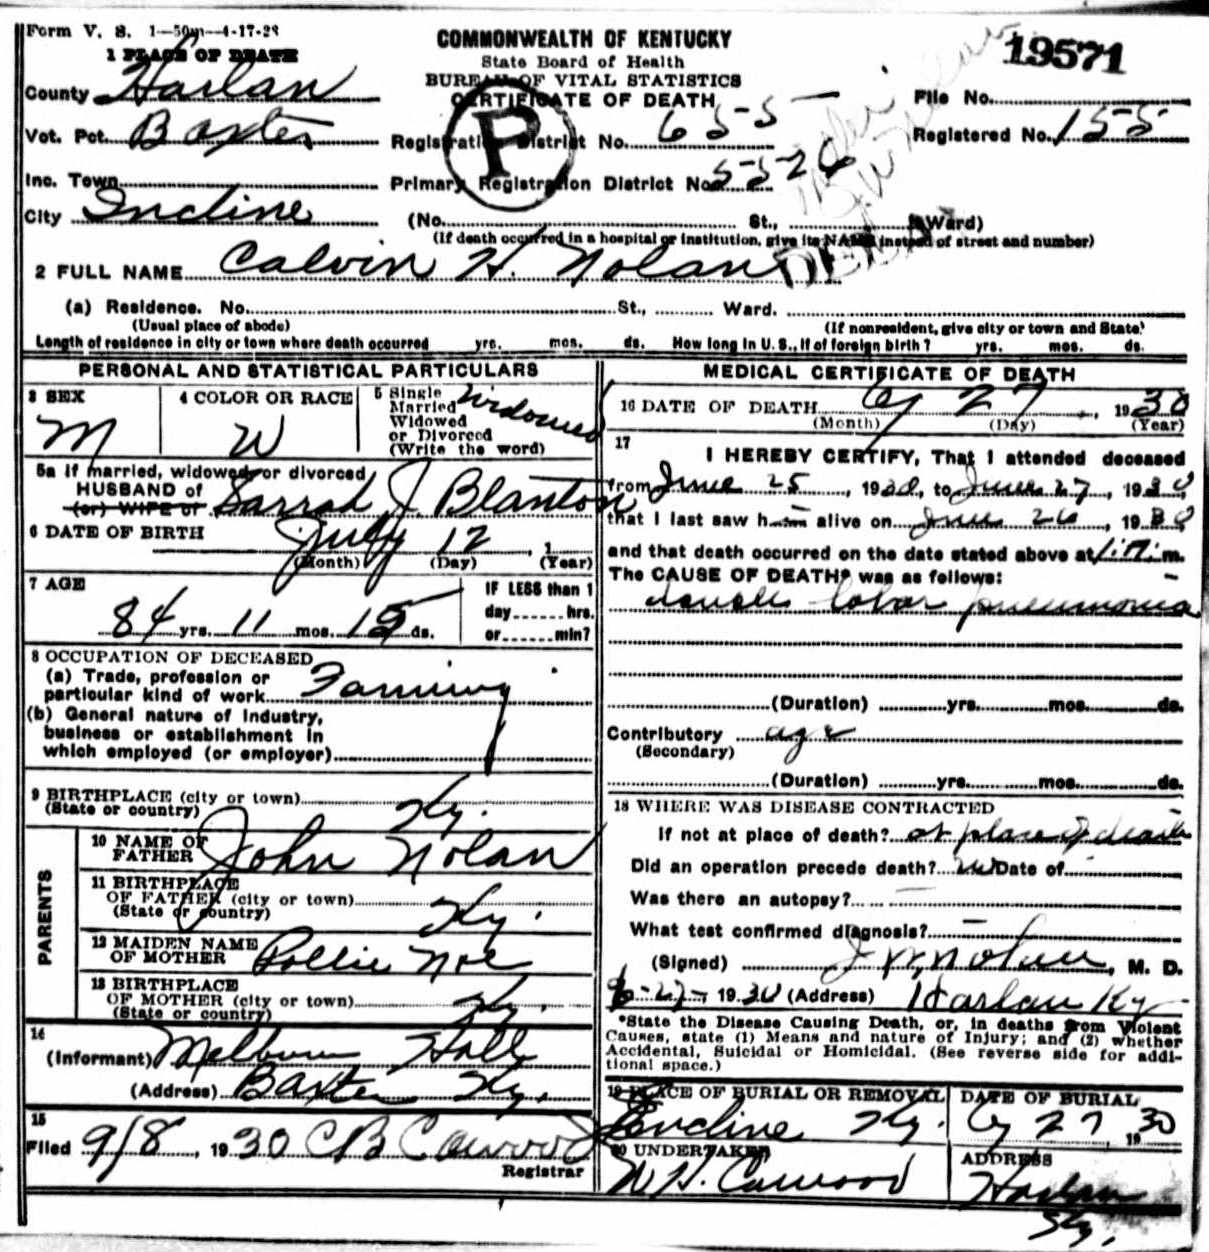 Form V. S. 1—50m—4-17-28
COMMONWEALTH OF KENTUCKY
State Board of Health
BUREAU OF VITAL STATISTICS
CERTIFICATE OF DEATH
19571
1 PLACE OF DEATH
County Harlan
File No.
Vot. Pct. Baxter
Registration District No. 655
Registered No. 155
Inc. Town
Primary Registration District No. 5526
P
DELAYED
City Incline (No. St., Ward)
(If death occurred in a hospital or institution, give its NAME instead of street and number)
2 FULL NAME Calvin H. Nolan
(a) Residence. No. St., Ward.
(Usual place of abode) (If nonresident, give city or town and State)
Length of residence in city or town where death occurred yrs. mos. ds. How long in U. S., if of foreign birth? yrs. mos. ds.
PERSONAL AND STATISTICAL PARTICULARS
3 SEX
M
4 COLOR OR RACE
W
5 Single
Married
Widowed
or Divorced
(Write the word)
Widowed
5a If married, widowed or divorced
HUSBAND of
(or) WIFE of Sarrah J. Blanton
6 DATE OF BIRTH July 12, 1
(Month) (Day) (Year)
7 AGE
84 yrs. 11 mos. 15 ds.
IF LESS than 1
day hrs.
or min?
8 OCCUPATION OF DECEASED
(a) Trade, profession or
particular kind of work Farming
(b) General nature of industry,
business or establishment in
which employed (or employer)
9 BIRTHPLACE (city or town)
(State or country) Ky.
PARENTS
10 NAME OF
FATHER John Nolan
11 BIRTHPLACE
OF FATHER (city or town)
(State or country) Ky.
12 MAIDEN NAME
OF MOTHER Pollie Noe
13 BIRTHPLACE
OF MOTHER (city or town)
(State or country) Ky.
14
(Informant) Melburn Hall
(Address) Baxter Ky.
15
Filed 9/8, 1930 C B Cawood
Registrar
MEDICAL CERTIFICATE OF DEATH
16 DATE OF DEATH 6 27, 1930
(Month) (Day) (Year)
17
I HEREBY CERTIFY, That I attended deceased
from June 25, 1930, to June 27, 1930
that I last saw him alive on June 26, 1930
and that death occurred on the date stated above at m.
The CAUSE OF DEATH* was as follows:
double lobar pneumonia
(Duration) yrs. mos. ds.
Contributory age
(Secondary)
(Duration) yrs. mos. ds.
18 WHERE WAS DISEASE CONTRACTED
If not at place of death? at place of death
Did an operation precede death? no Date of
Was there an autopsy? —
What test confirmed diagnosis? —
(Signed) J W Nolan, M. D.
6-27-, 1930 (Address) Harlan Ky
*State the Disease Causing Death, or, in deaths from Violent
Causes, state (1) Means and nature of Injury; and (2) whether
Accidental, Suicidal or Homicidal. (See reverse side for addi-
tional space.)
19 PLACE OF BURIAL OR REMOVAL
Incline Ky.
DATE OF BURIAL
6 27, 1930
20 UNDERTAKER
W H. Cawood
ADDRESS
Harlan
Ky.